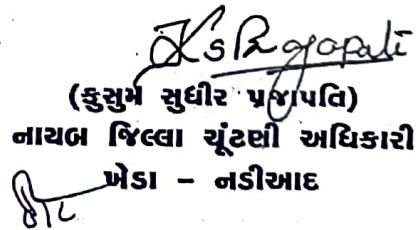 KSPrajapati
(કુસુમ સુધીર પ્રજાપતિ)
નાયબ જિલ્લા ચૂંટણી અધિકારી
ખેડા – નડીઆદ